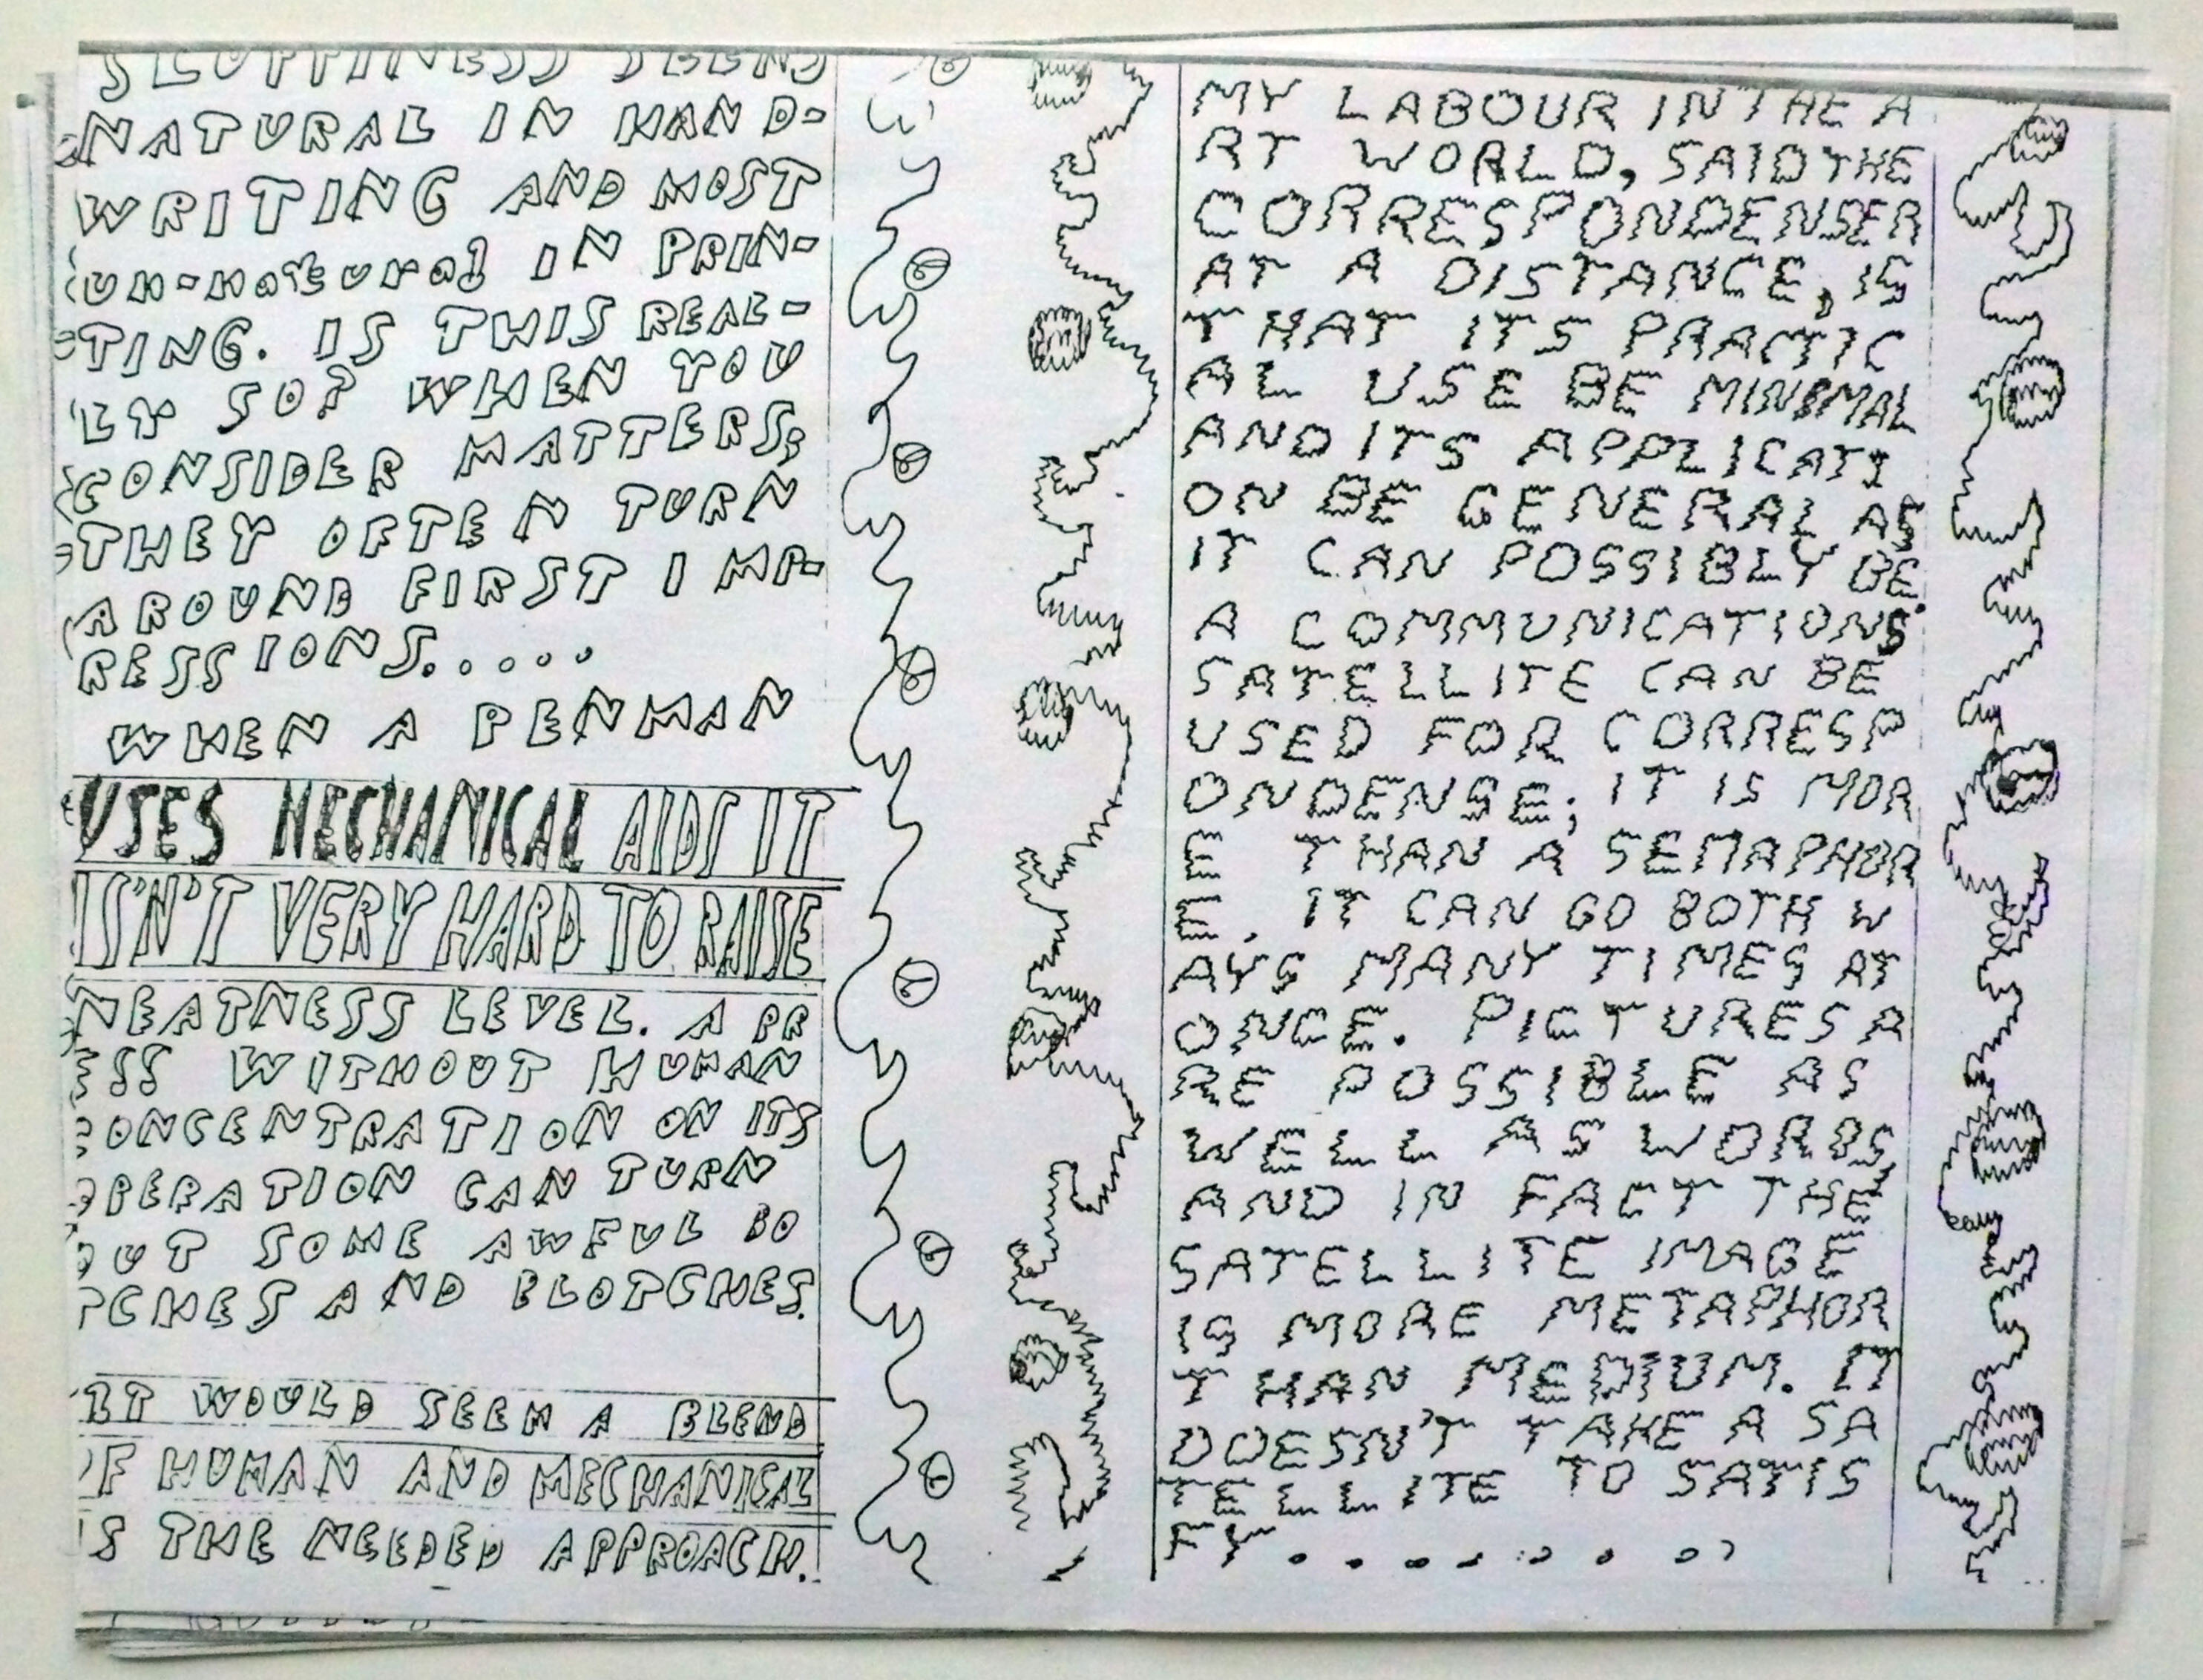 SLOPPINESS SEEMS
NATURAL IN HAND-
WRITING AND MOST
un-natural IN PRIN-
TING. IS THIS REAL-
LY SO? WHEN YOU
CONSIDER MATTERS,
THEY OFTEN TURN
AROUND FIRST IMP-
RESSIONS.....
WHEN A PENMAN
USES MECHANICAL AIDS IT
IS'N'T VERY HARD TO RAISE
NEATNESS LEVEL. A PR
ESS WITHOUT HUMAN
CONCENTRATION ON ITS
OPERATION CAN TURN
OUT SOME AWFUL BO
TCHES AND BLOTCHES.
IT WOULD SEEM A BLEND
OF HUMAN AND MECHANICAL
IS THE NEEDED APPROACH.
MY LABOUR IN THE A
RT WORLD, SAID THE
CORRESPONDENSER
AT A DISTANCE, IS
THAT ITS PRACTIC
AL USE BE MINIMAL
AND ITS APPLICATI
ON BE GENERAL AS
IT CAN POSSIBLY BE.
A COMMUNICATIONS
SATELLITE CAN BE
USED FOR CORRESP
ONDENSE; IT IS MOR
E THAN A SEMAPHOR
E. IT CAN GO BOTH W
AYS MANY TIMES AT
ONCE. PICTURES A
RE POSSIBLE AS
WELL AS WORDS,
AND IN FACT THE
SATELLITE IMAGE
IS MORE METAPHOR
THAN MEDIUM. IT
DOESN'T TAKE A SA
TELLITE TO SATIS
FY........